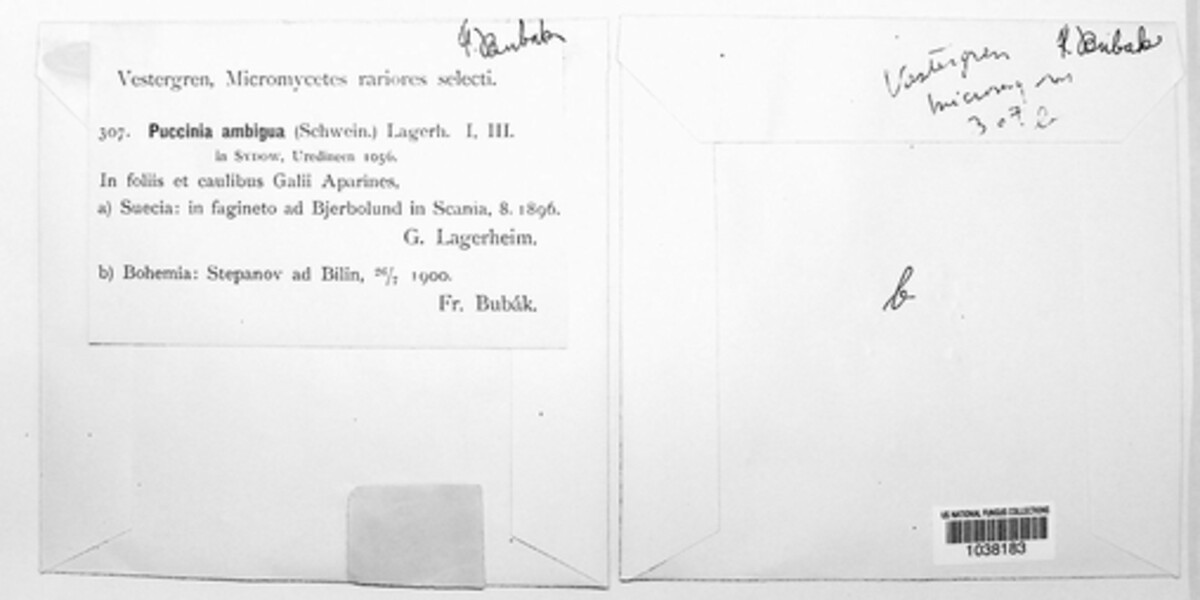 F. Bubák
Vestergren, Micromycetes rariores selecti.
307. Puccinia ambigua (Schwein.) Lagerh. I, III.
in Sydow, Uredineen 1056.
In foliis et caulibus Galii Aparines,
a) Suecia: in fagineto ad Bjerbolund in Scania, 8. 1896.
G. Lagerheim.
b) Bohemia: Stepanov ad Bilin, 26/7 1900.
Fr. Bubák.
F. Bubák
Vestergren
307 b
b
US NATIONAL FUNGUS COLLECTIONS
1038183